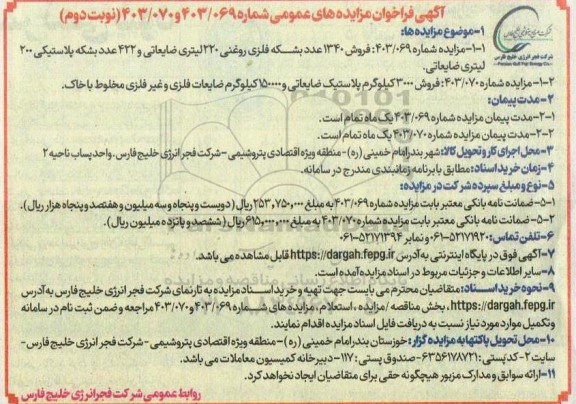 آگهی فراخوان مزایده های عمومی شماره ۴۰۳/۰۶۹ و ۴۰۳/۰۷۰ (نوبت دوم)
شرکت فجر انرژی خلیج فارس
۱-موضوع مزایده ها:
۱-۱-مزایده شماره ۴۰۳/۰۶۹: فروش ۱۳۴۰ عدد بشکه فلزی روغنی ۲۲۰ لیتری ضایعاتی و ۴۲۲ عدد بشکه پلاستیکی ۲۰۰
لیتری ضایعاتی.
۲-۱- مزایده شماره ۴۰۳/۰۷۰: فروش ۳۰۰۰ کیلوگرم پلاستیک ضایعاتی و ۱۵۰۰۰۰ کیلوگرم ضایعات فلزی و غیر فلزی مخلوط با خاک.
۲-مدت پیمان:
۱-۲-مدت پیمان مزایده شماره ۴۰۳/۰۶۹ یک ماه تمام است.
۲-۲-مدت پیمان مزایده شماره ۴۰۳/۰۷۰ یک ماه تمام است.
۳-محل اجرای کار و تحویل کالا: شهر بندرامام خمینی (ره)-منطقه ویژه اقتصادی پتروشیمی -شرکت فجر انرژی خلیج فارس. واحد پساب ناحیه ۲
۴-زمان خرید اسناد: مطابق با برنامه زمانبندی مندرج در سامانه.
۵-نوع و مبلغ سپرده شرکت در مزایده:
۱-۵-ضمانت نامه بانکی معتبر بابت مزایده شماره ۴۰۳/۰۶۹ به مبلغ ۲۵۳,۷۵۰,۰۰۰ ریال (دویست و پنجاه و سه میلیون و هفتصد و پنجاه هزار ریال).
۲-۵-ضمانت نامه بانکی معتبر بابت مزایده شماره ۴۰۳/۰۷۰ به مبلغ ۶۱۵,۰۰۰,۰۰۰ ریال (ششصد و پانزده میلیون ریال).
۶-تلفن تماس: ۵۲۱۷۱۹۲۰-۰۶۱ و نمابر ۵۲۱۷۱۳۹۴-۰۶۱
۷-آگهی فوق در پایگاه اینترنتی به آدرس https://dargah.fepg.ir قابل مشاهده می باشد.
۸-سایر اطلاعات و جزئیات مربوط در اسناد مزایده آمده است.
۹-نحوه خرید اسناد: متقاضیان محترم می بایست جهت تهیه و خرید اسناد مزایده به تارنمای شرکت فجر انرژی خلیج فارس به آدرس
https://dargah.fepg.ir، بخش مناقصه/مزایده، استعلام، مزایده های شماره ۴۰۳/۰۶۹ و ۴۰۳/۰۷۰ مراجعه و ضمن ثبت نام در سامانه
وتکمیل موارد مورد نیاز نسبت به دریافت فایل اسناد مزایده اقدام نمایند.
۱۰-محل تحویل پاکتها به مزایده گزار: خوزستان بندرامام خمینی (ره)-منطقه ویژه اقتصادی پتروشیمی -شرکت فجر انرژی خلیج فارس-
سایت ۲-کدپستی: ۶۳۵۶۱۷۸۷۲۱-صندوق پستی: ۱۱۷-دبیرخانه کمیسیون معاملات می باشد.
۱۱-ارائه سوابق و مدارک مزبور هیچگونه حقی برای متقاضیان ایجاد نخواهد کرد.
روابط عمومی شرکت فجر انرژی خلیج فارس